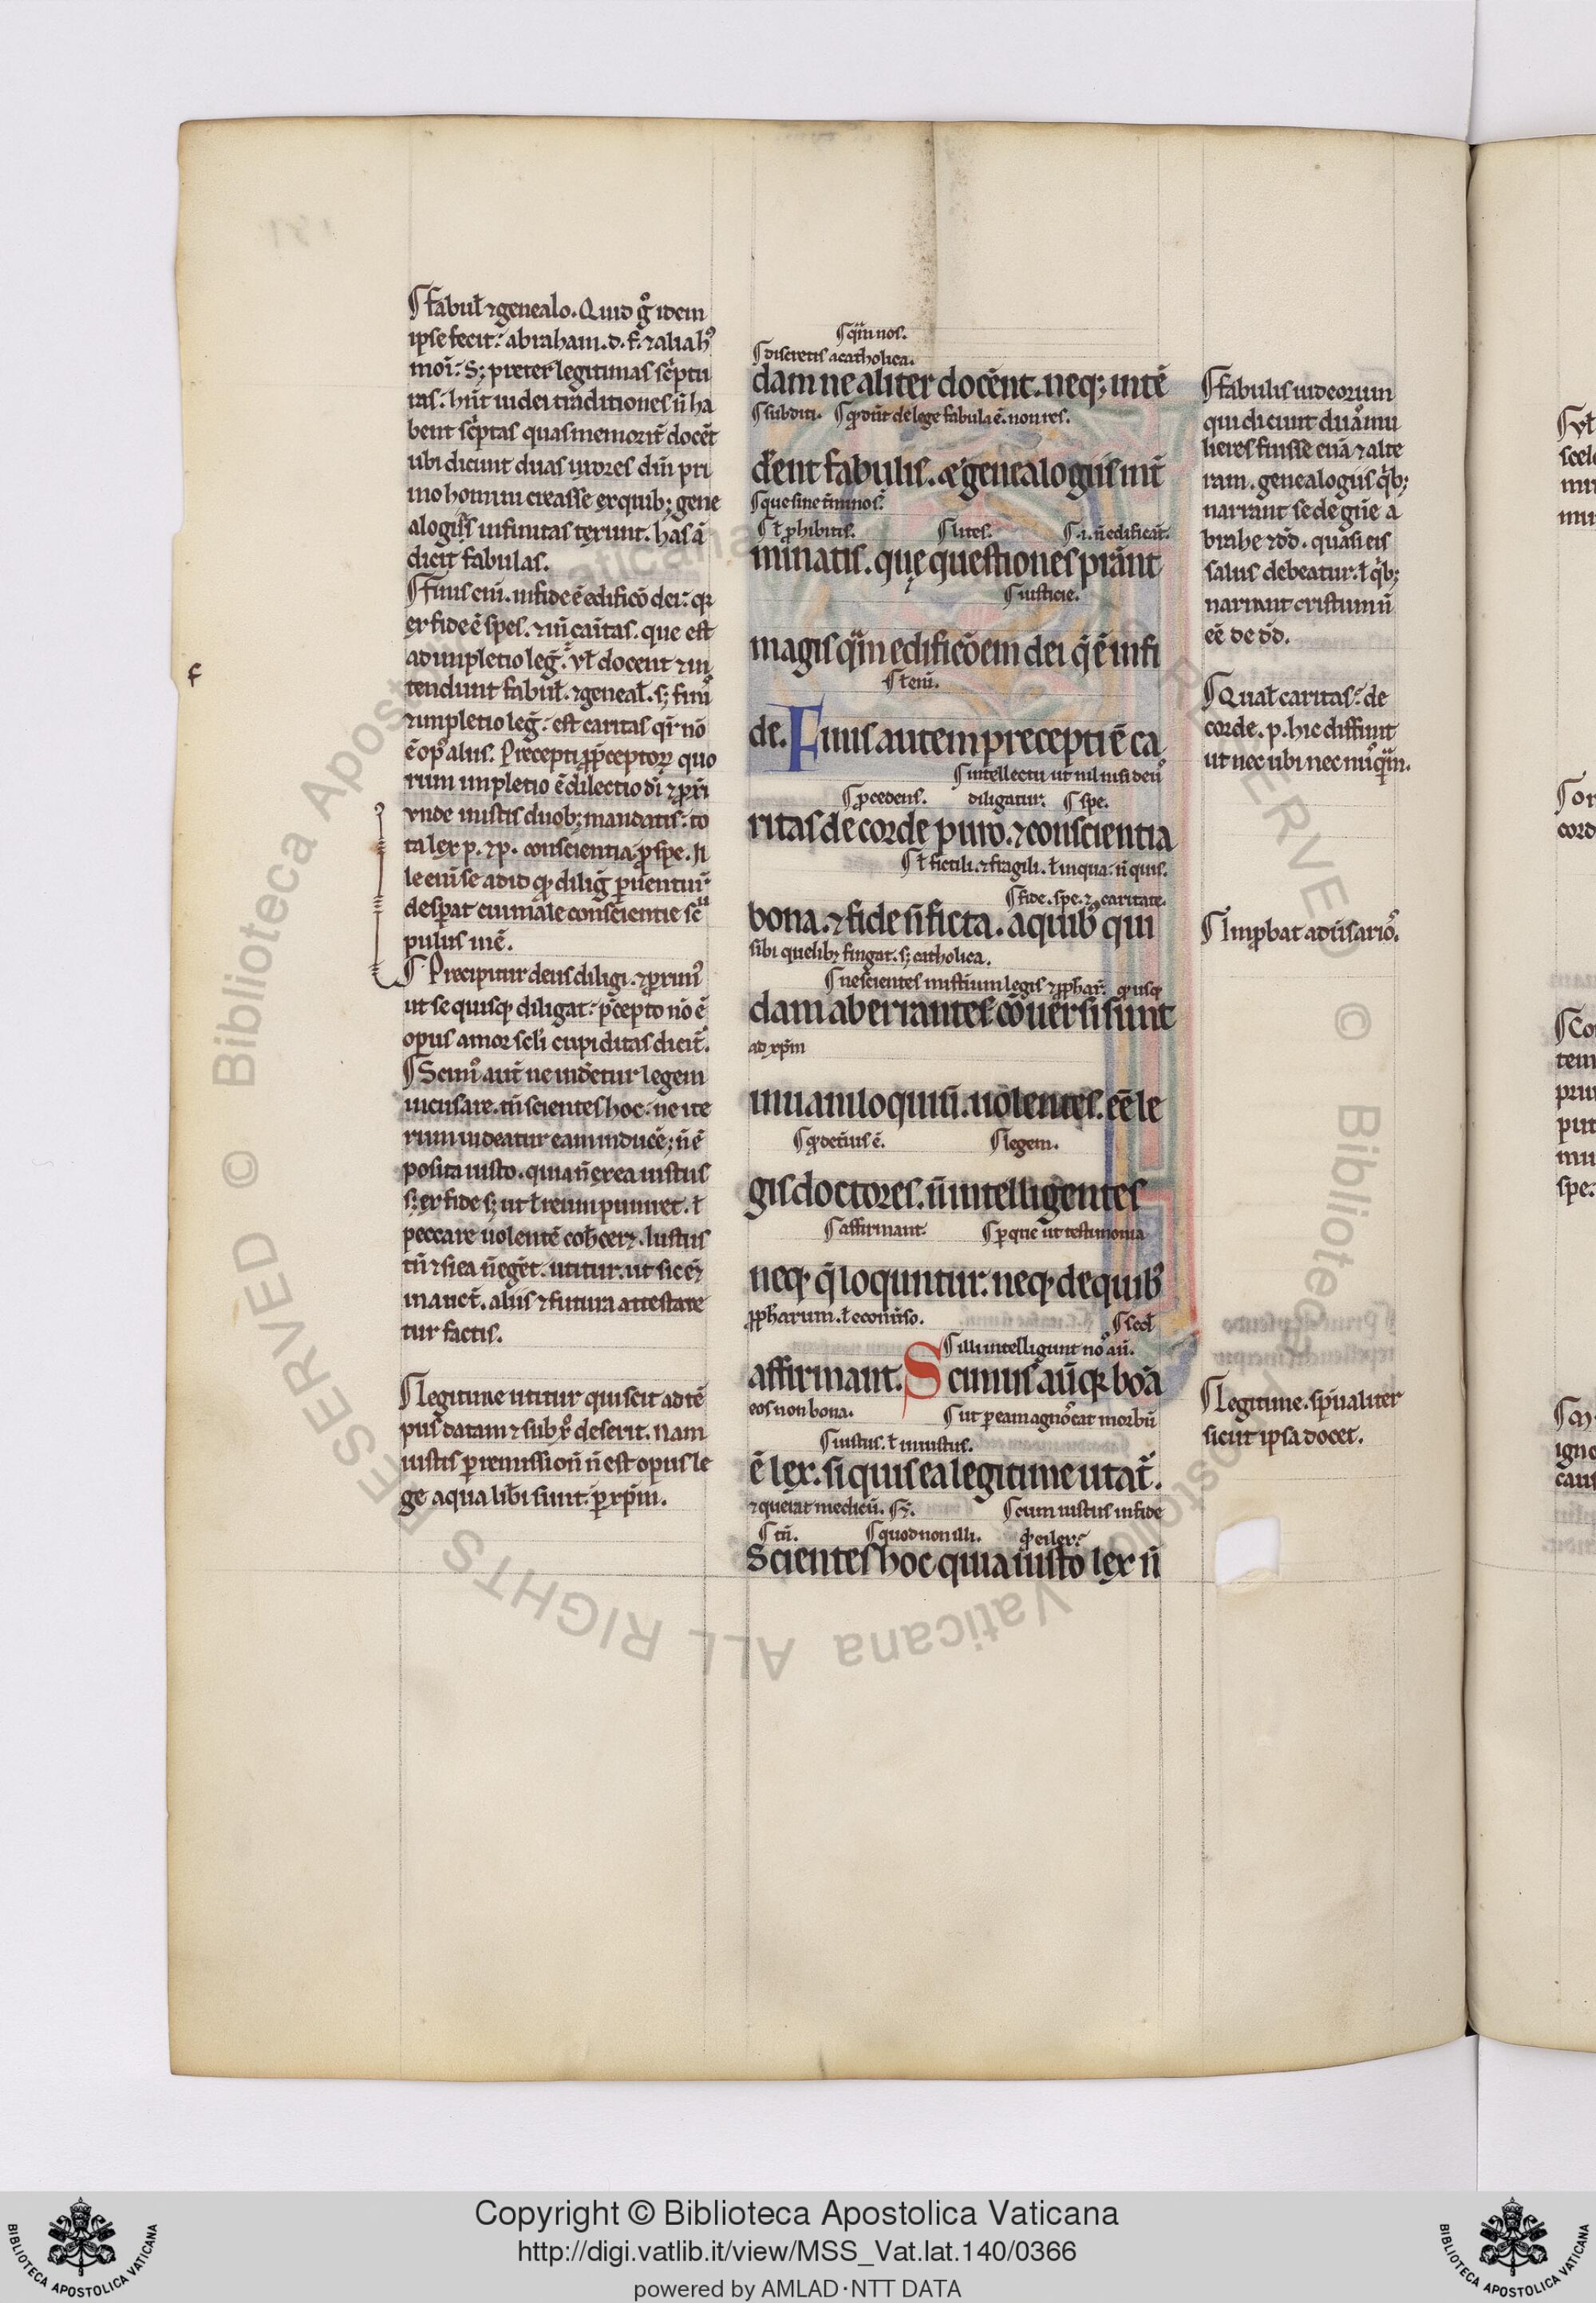 ¶ Fabul̄ ⁊ genealo. Quid g̊ idem
ipse fecit: abraham. d. f. ⁊ alia hꝰ
moī: Sꝫ preter legitimas sc̄ptu
ras: hn̄t iudei traditiones n̄ ha
bent sc̄ptas quas memorit̄ docēt
ubi dicunt duas uxores dm̄ pri
mo homini creasse ex quibꝫ gene
alogiis infinitas texunt. has a̅
dicit fabulas.
¶ Finis eni̅. in fide ē edifico̅ dei: qꝛ
ex fide ē spes. ⁊ in̅ caritas. que est
adimpletio leg̅. Vl̄ docent ⁊ in
tendunt fabul̄. ⁊ geneal̄. sꝫ finis
⁊ impletio leg̅: est caritas qr̄ no̅
ē opꝰ aliis. Precepti ꝓp̄ceptoꝝ quo
rum impletio ē dilectio di̅ ⁊ ꝓxi̅
vnde in istis duobꝫ mandatis: to
ta lex p. ⁊ p. conscientia ꝓ spe. Il
le eni̅ se ad id qd̄ dilig̅ ꝑuentur̄
desꝑat cui male conscientie sc̄u
pulus inē.
¶ Precipitur deus diligi. ⁊ ꝓximꝰ
ut se quisqꝫ diligat: p̄cepto no̅ ē
opus amor scl̄i cupiditas dicit̄.
¶ Scimꝰ aut̄ ne uidetur legem
incusare. tn̄ scientes hoc: ne ite
rum uideatur eam inducē; n̄ ē
posita iusto. quia n̄ ex ea iustus
sꝫ ex fide sꝫ ut l̄ reum puniret. l̄
peccare uolentē coh̄ceꝛ. Iustus
tn̄ ⁊ si ea n̄ egēt. utitur. ut sic eiꝰ
manet̄. aliis ⁊ futura attestare
tur factis.
¶ Legitime utitur qui scit ad tē
pus datam ⁊ sub xp̄o deserit. Nam
iustis ꝑ remission̄ n̄ est opus le
ge a qua lib̄i sunt: ꝑ xp̄m.
f
¶ qͣm nos.
¶ discretis a catholica.
dam ne aliter docēnt. neqꝫ intē
¶ subditi. ¶ qd̄ dn̄t de lege fabula ē. non res.
dēnt fabulis. & genealogiis int̄
¶ que sine t̄minos.
¶ l̄ ꝓhibitis. ¶ lites. ¶ .i. n̄ edificāt.
minatis. quę questiones pr̄ānt
¶ iusticie.
magis qͣm edifico̅em dei q̄ ē in fi
¶ l̄ eni̅.
de. Finis autem precepti ē ca
¶ intellectu ut nil nisi deus
¶ ꝓcedens. diligatur. ¶ spe.
ritas de corde puro. ⁊ conscientia
¶ l̄ fictili. ⁊ fragili. l̄ in qua: n̄ quis.
¶ fide. spe. ⁊ caritate.
bona. ⁊ fide n̄ ficta. a quibꝰ qui
sibi quelibꝫ fingat. sꝫ catholica.
¶ nescientes misterium legis ⁊ ꝓphar̄. qd̄ usqꝫ
dam aberrantes co̅uersi sunt
ad xp̄m
in uaniloquiu̅. uolentes. eē le
¶ qd̄ det̄ius ē. ¶ legem.
gis doctores. n̄ intelligentes
¶ affirmant. ¶ ꝑ que ut testimonia
neqꝫ q̄ loquntur. neqꝫ de quibꝰ
ꝓph̄arum. l̄ econu̅so.
¶ sed
¶ illi intelligunt nos au̅.
affirmant. Scimus au̅ qꝛ bo̅a
eos non bona. ¶ ut ꝑ eam agnoscat morbu̅
¶ iustus. l̄ iniustus.
ē lex. si quis ea legitime utat̄.
⁊ querat medicu̅. ¶ cum iustus in fide
¶ tn̄. ¶ quod non illi. qd̄ ei lex:
Scientes hoc quia iusto lex n̄
¶ Fabulis iudeorum
qui dicunt duas mu
lieres fuisse eua̅ ⁊ alte
ram. genealogiis qͥbꝫ
narrant se de gn̄e a
brahe ⁊ dd̄. quasi eis
salus debeatur. l̄ qͥbꝫ
narrant cristum n̄
eē de dd̄.
¶ Qual̄ caritas: de
corde. p. hic diffinit
ut nec ubi nec nu̅qͣm.
¶ Improbat adu̅sarios.
¶ Legitime. sp̄ualiter
sicut ipsa docet.
Copyright © Biblioteca Apostolica Vaticana
http://digi.vatlib.it/view/MSS_Vat.lat.140/0366
powered by AMLAD·NTT DATA